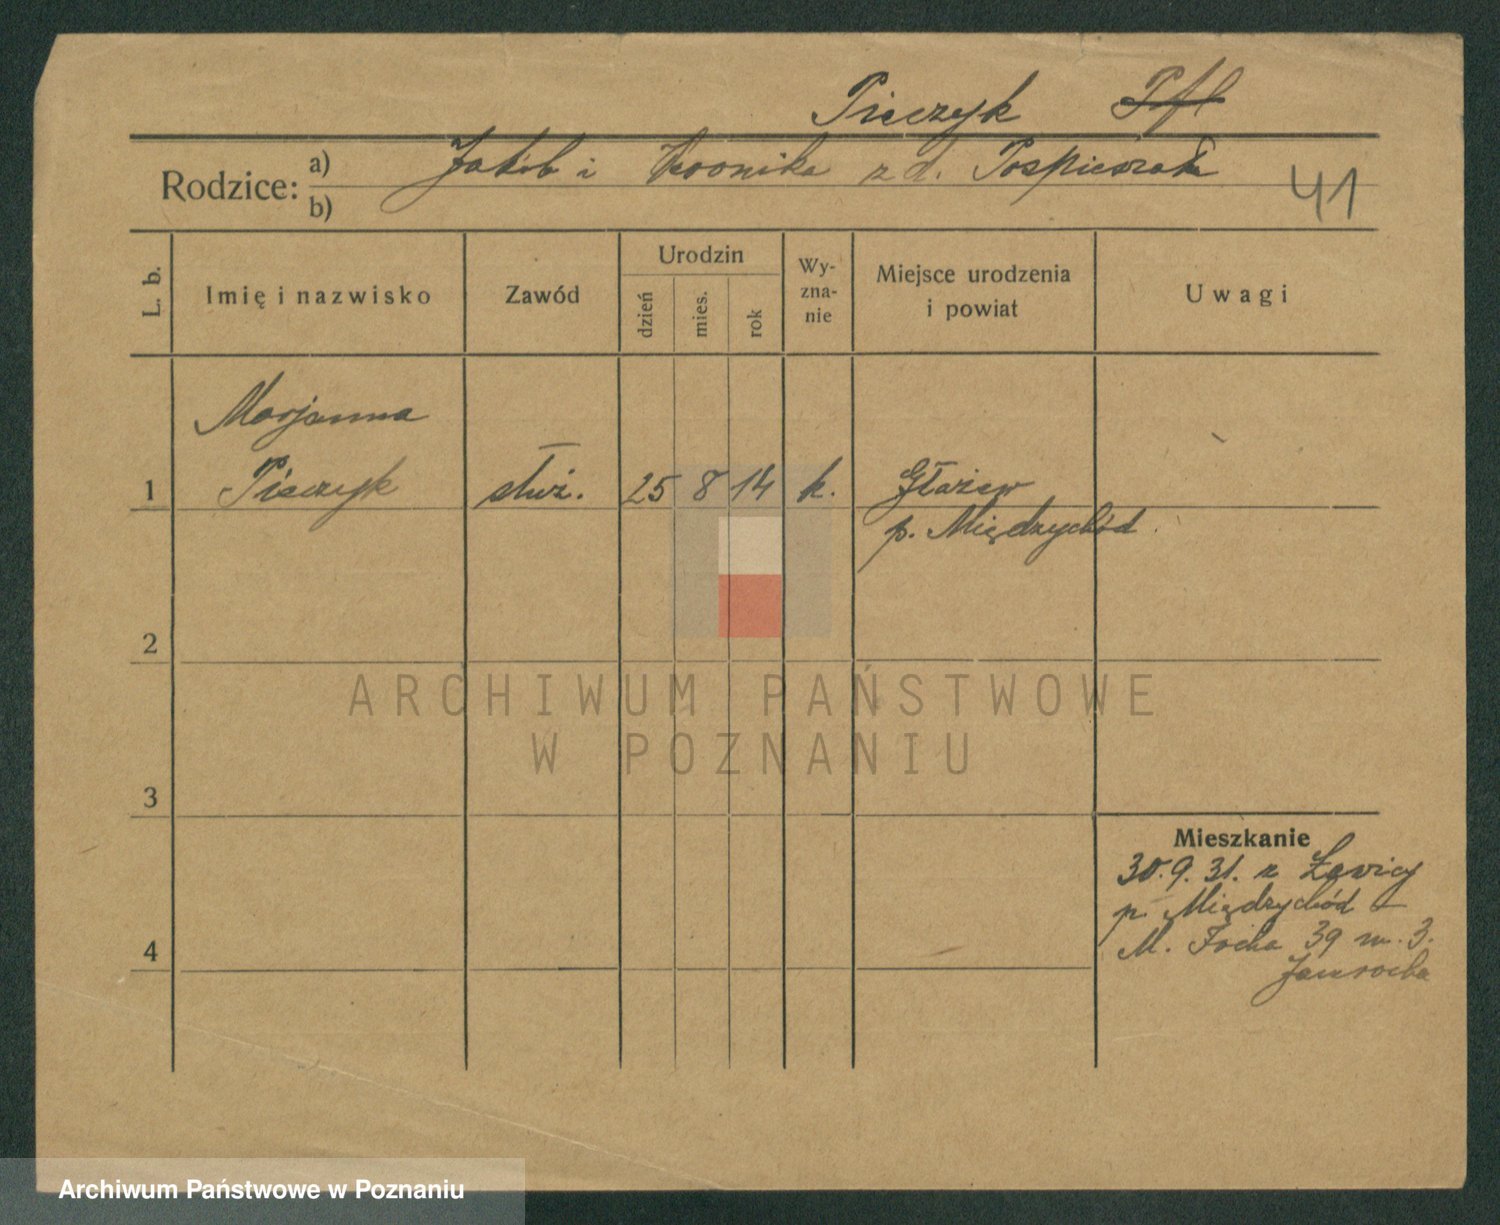 Pieczyk
Rodzice: a) Jakób i Weronika z d. Pospieszała
b)
41
L. b.
Imię i nazwisko
Zawód
Urodzin
dzień
mies.
rok
Wy-
zna-
nie
Miejsce urodzenia
i powiat
Uwagi
Marjanna
1 Pieczyk służ. 25 8 14 k. Głażew
p. Międzychód.
2
ARCHIWUM PAŃSTWOWE
W POZNANIU
3
Mieszkanie
30.9.31. z Ławicy
p. Międzychód –
M. Focha 39 m. 3.
4
Archiwum Państwowe w Poznaniu